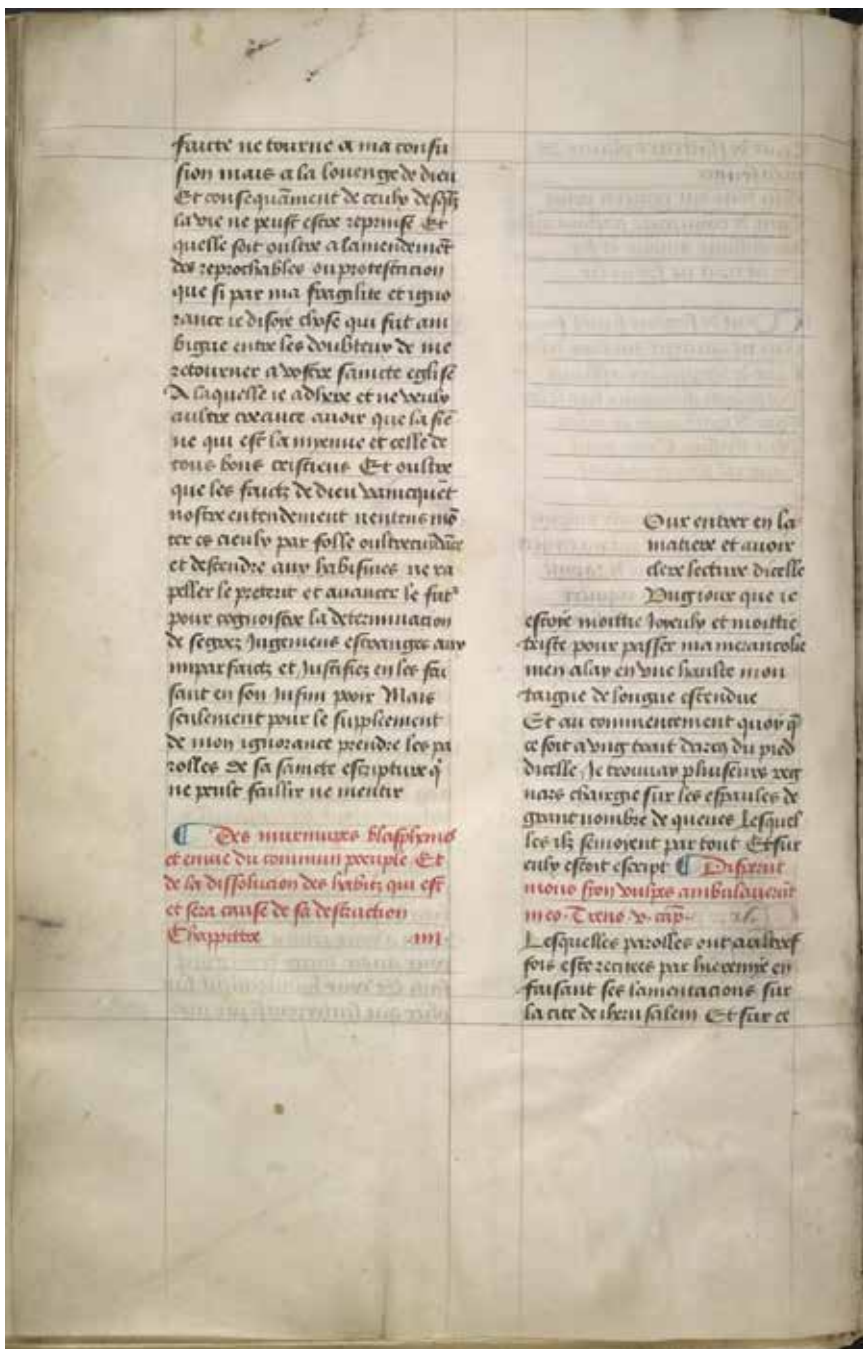 faicte ne tourne a ma confu
sion mais a la louenge de dieu
Et consequāment de ceulx desqlz
la vie ne peust estre reprinse Et
quelle soit oultre a lamendemēt
des reprochables ou protestacion
que si par ma fragilite et igno
rance ie disoie chose qui fut am
bigue entre les doubteux de me
retourner a vostre saincte eglise
A laquelle ie adhere et ne veulx
aultre creance auoir que la siē
ne qui est la myenne et celle de
tous bons cristiens Et oultre
que les faictz de dieu vaincquēt
nostre entendement nentens mō
ter es cieulx par folle oultrecuidāce
et destendre aux habismes ne ra
peller le preterit et auancer le fut᾽
pour cognoistre la determinacion
de segrez Jugemens estranges aux
imparfaictz et Justifiez en les fai
sant en son infini pooir Mais
seulement pour le suppleement
de mon ignorance prendre les pa
rolles de sa saincte escripture q̄
ne peult faillir ne mentir
¶ Des murmures blasphemes
et enuie du commun poeuple Et
de la dissolucion des habitz qui est
et sera cause de sa destruction
Chappittre .iiii.
Our entrer en la
matiere et auoir
clere lecture dicelle
Vng iour que ie
estoie moittie Joyeulx et moittie
triste pour passer ma merancolie
men alay en vne haulte mon
taigne de longue estendue
Et au commencement quoy q̄
ce soit a vng trait darcq du pied
dicelle Je trouuay pluiseurs reg
nars chairgie sur les espaules de
grant nombre de queues Lesquel
les ilz semoyent par tout Et sur
eulx estoit escript ¶ Disperiit
mons syon vulpes ambulauerūt
in eo. Treno. v. cap̄.
Lesquelles parolles ont aultref
fois este recitees par hieremye en
faisant ses lamentacions sur
la cite de iherusalem Et sur ce